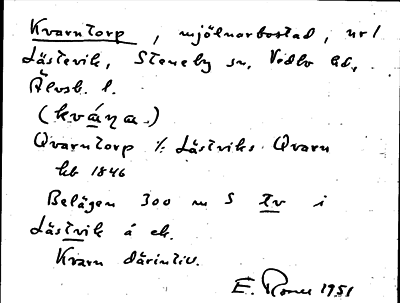 Kvarntorp, mjölnarbostad, nr 1
Låstevik, Steneby sn, Vedbo hd,
Älvsb. l.
(kváɳa.)
Qvarntorp /: Låstviks Qvarn
hb 1846
Belägen 300 m S Xv i
Låstvik å ek.
Kvarn därintill.
E. 1951